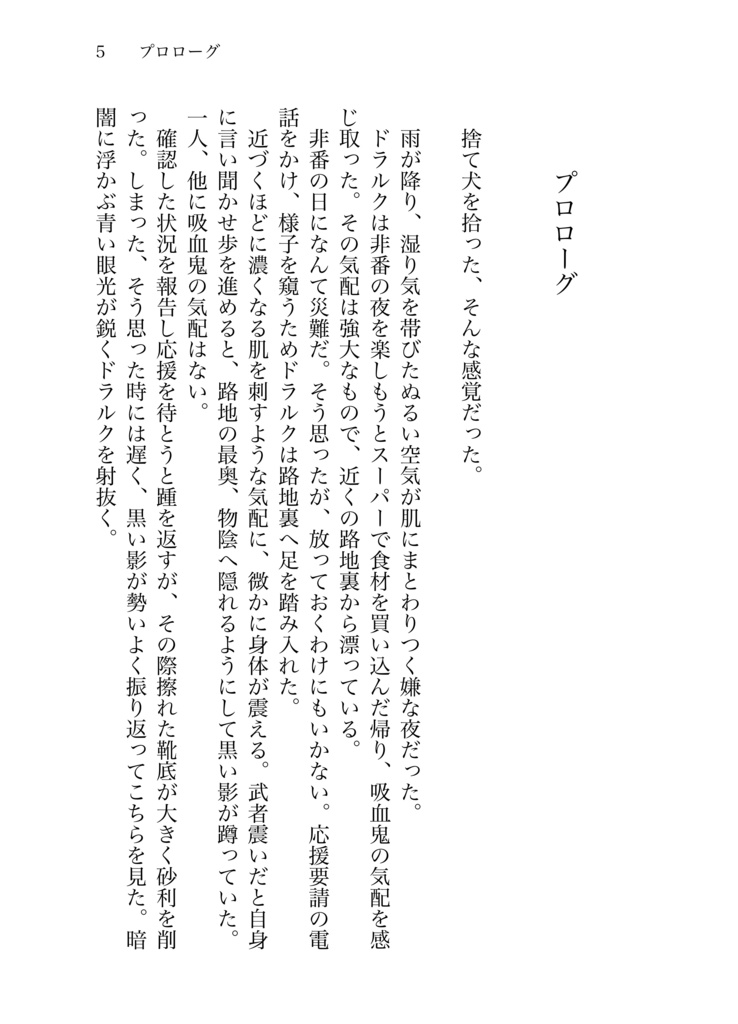 5 プロローグ
プロローグ
捨て犬を拾った、そんな感覚だった。
雨が降り、湿り気を帯びたぬるい空気が肌にまとわりつく嫌な夜だった。
ドラルクは非番の夜を楽しもうとスーパーで食材を買い込んだ帰り、吸血鬼の気配を感
じ取った。その気配は強大なもので、近くの路地裏から漂っている。
非番の日になんて災難だ。そう思ったが、放っておくわけにもいかない。応援要請の電
話をかけ、様子を窺うためドラルクは路地裏へ足を踏み入れた。
近づくほどに濃くなる肌を刺すような気配に、微かに身体が震える。武者震いだと自身
に言い聞かせ歩を進めると、路地の最奥、物陰へ隠れるようにして黒い影が蹲っていた。
一人、他に吸血鬼の気配はない。
確認した状況を報告し応援を待とうと踵を返すが、その際擦れた靴底が大きく砂利を削
った。しまった、そう思った時には遅く、黒い影が勢いよく振り返ってこちらを見た。暗
闇に浮かぶ青い眼光が鋭くドラルクを射抜く。